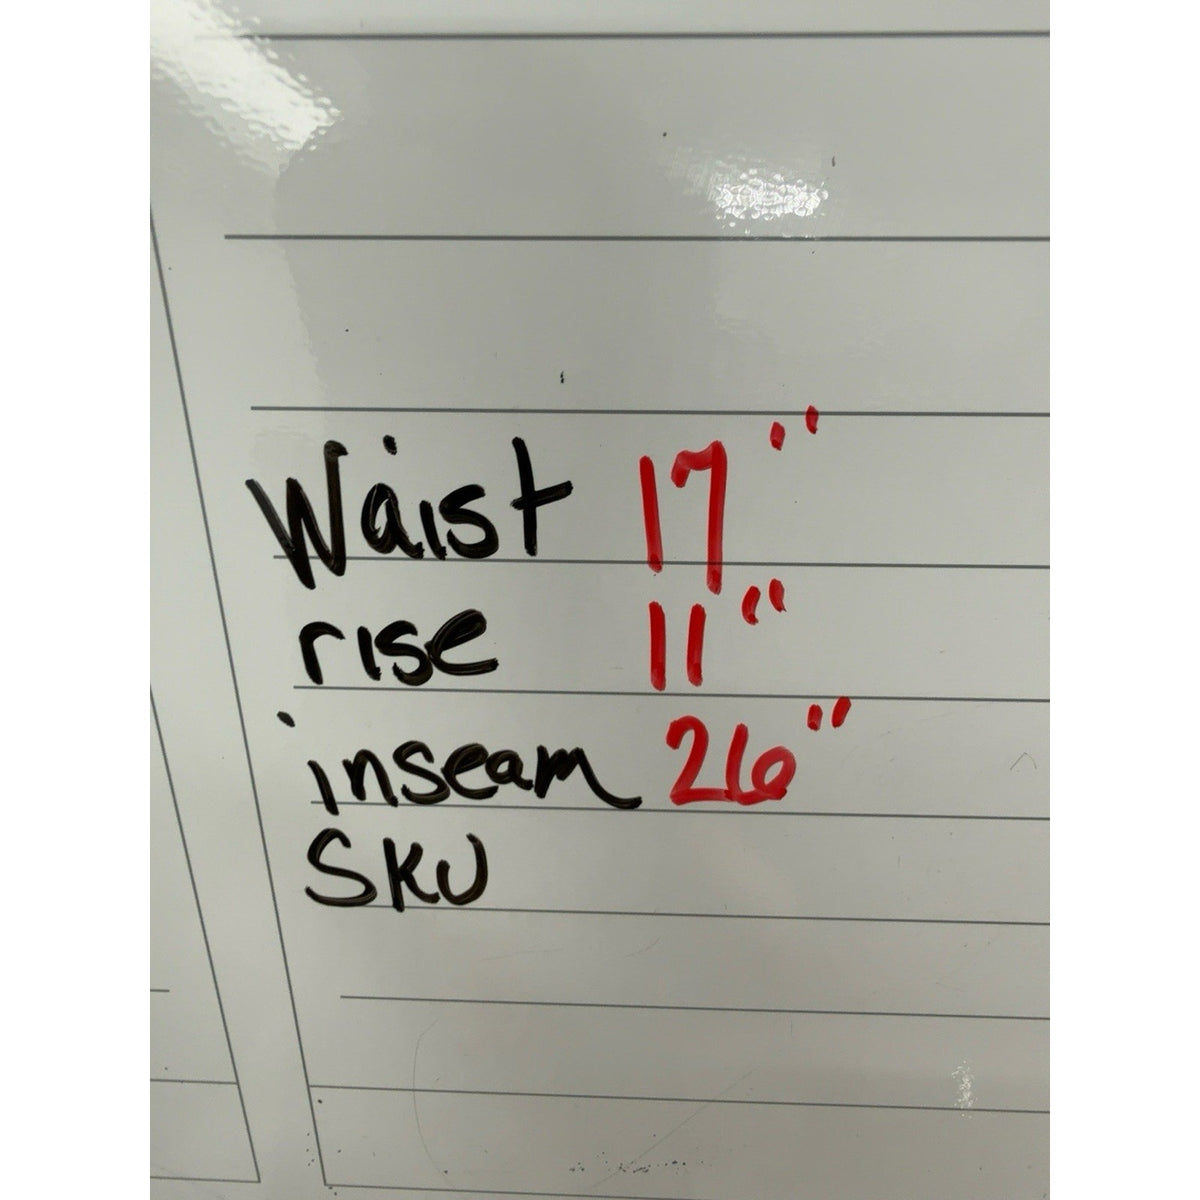 Waist 17"
rise 11"
inseam 26"
SKU